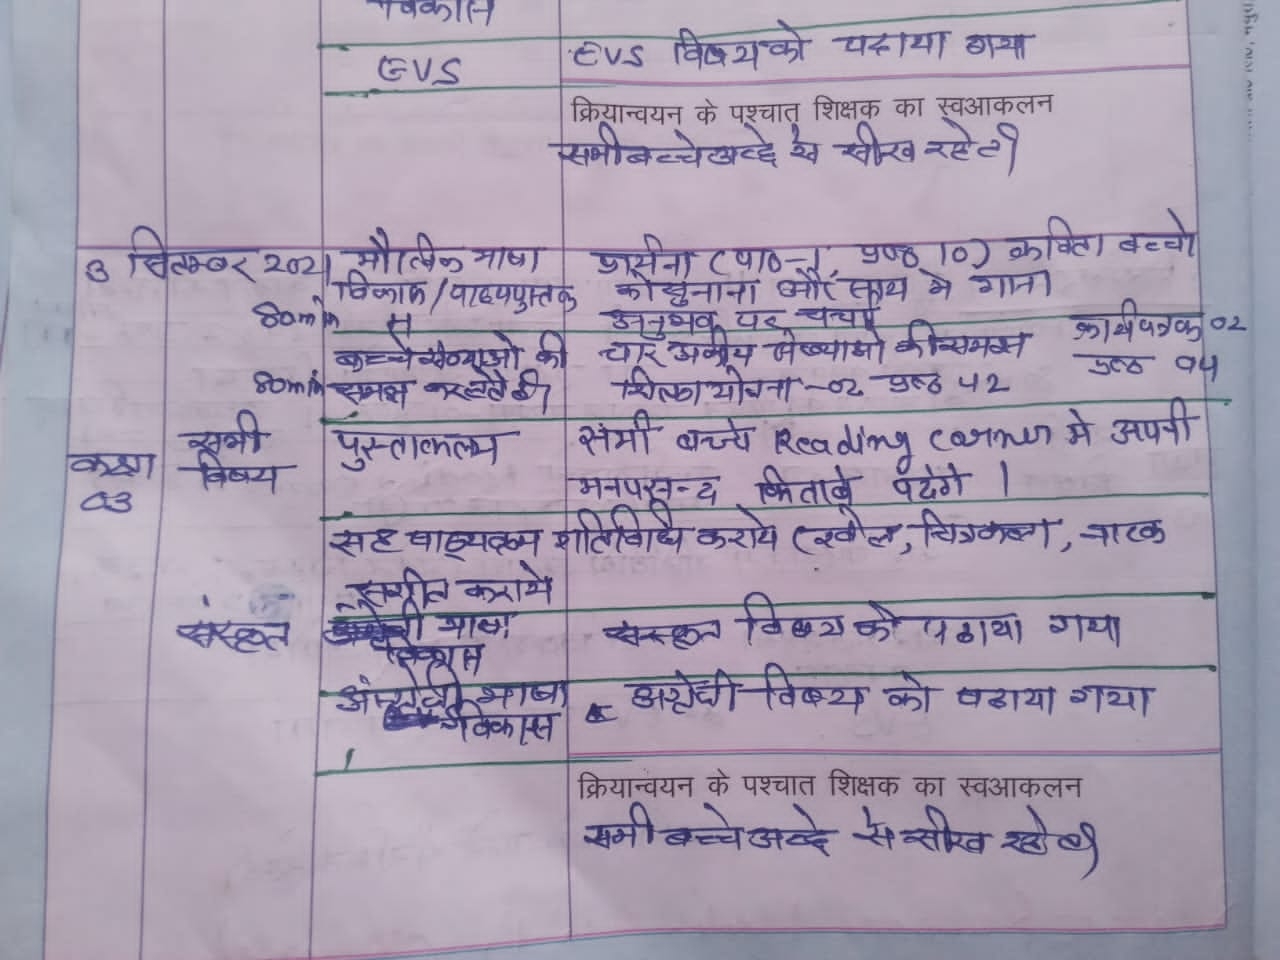 विकास
EVS
EVS विषय को पढाया गया
क्रियान्वयन के पश्चात शिक्षक का स्वआकलन
सभी बच्चे अच्छे से सीख रहे थे
3 सितम्बर 2021
मौखिक भाषा
विकास/पाठ्यपुस्तक
80min
से
प्रार्थना (पाठ-1, पृष्ठ 10) कविता बच्चो
को सुनाना और साथ मे गाना
अनुभव पर चर्चा
बच्चे संख्याओ की
80min समझ
चार अंकीय संख्याओ की समझ
कार्यपत्रक 02
शिक्षण योजना -02 पृष्ठ 42
पृष्ठ 94
कक्षा
03
सभी
विषय
पुस्तकालय
सभी बच्चे Reading corner मे अपनी
मनपसन्द किताबे पढेगे।
सह पाठ्यक्रम गतिविधि कराये (खेल, चित्रकला, नाटक
संगीत कराये
संस्कृत
भाषा
विकास
संस्कृत विषय को पढाया गया
अंग्रेजी भाषा
विकास
अंग्रेजी विषय को पढाया गया
क्रियान्वयन के पश्चात शिक्षक का स्वआकलन
सभी बच्चे अच्छे से सीख रहे थे